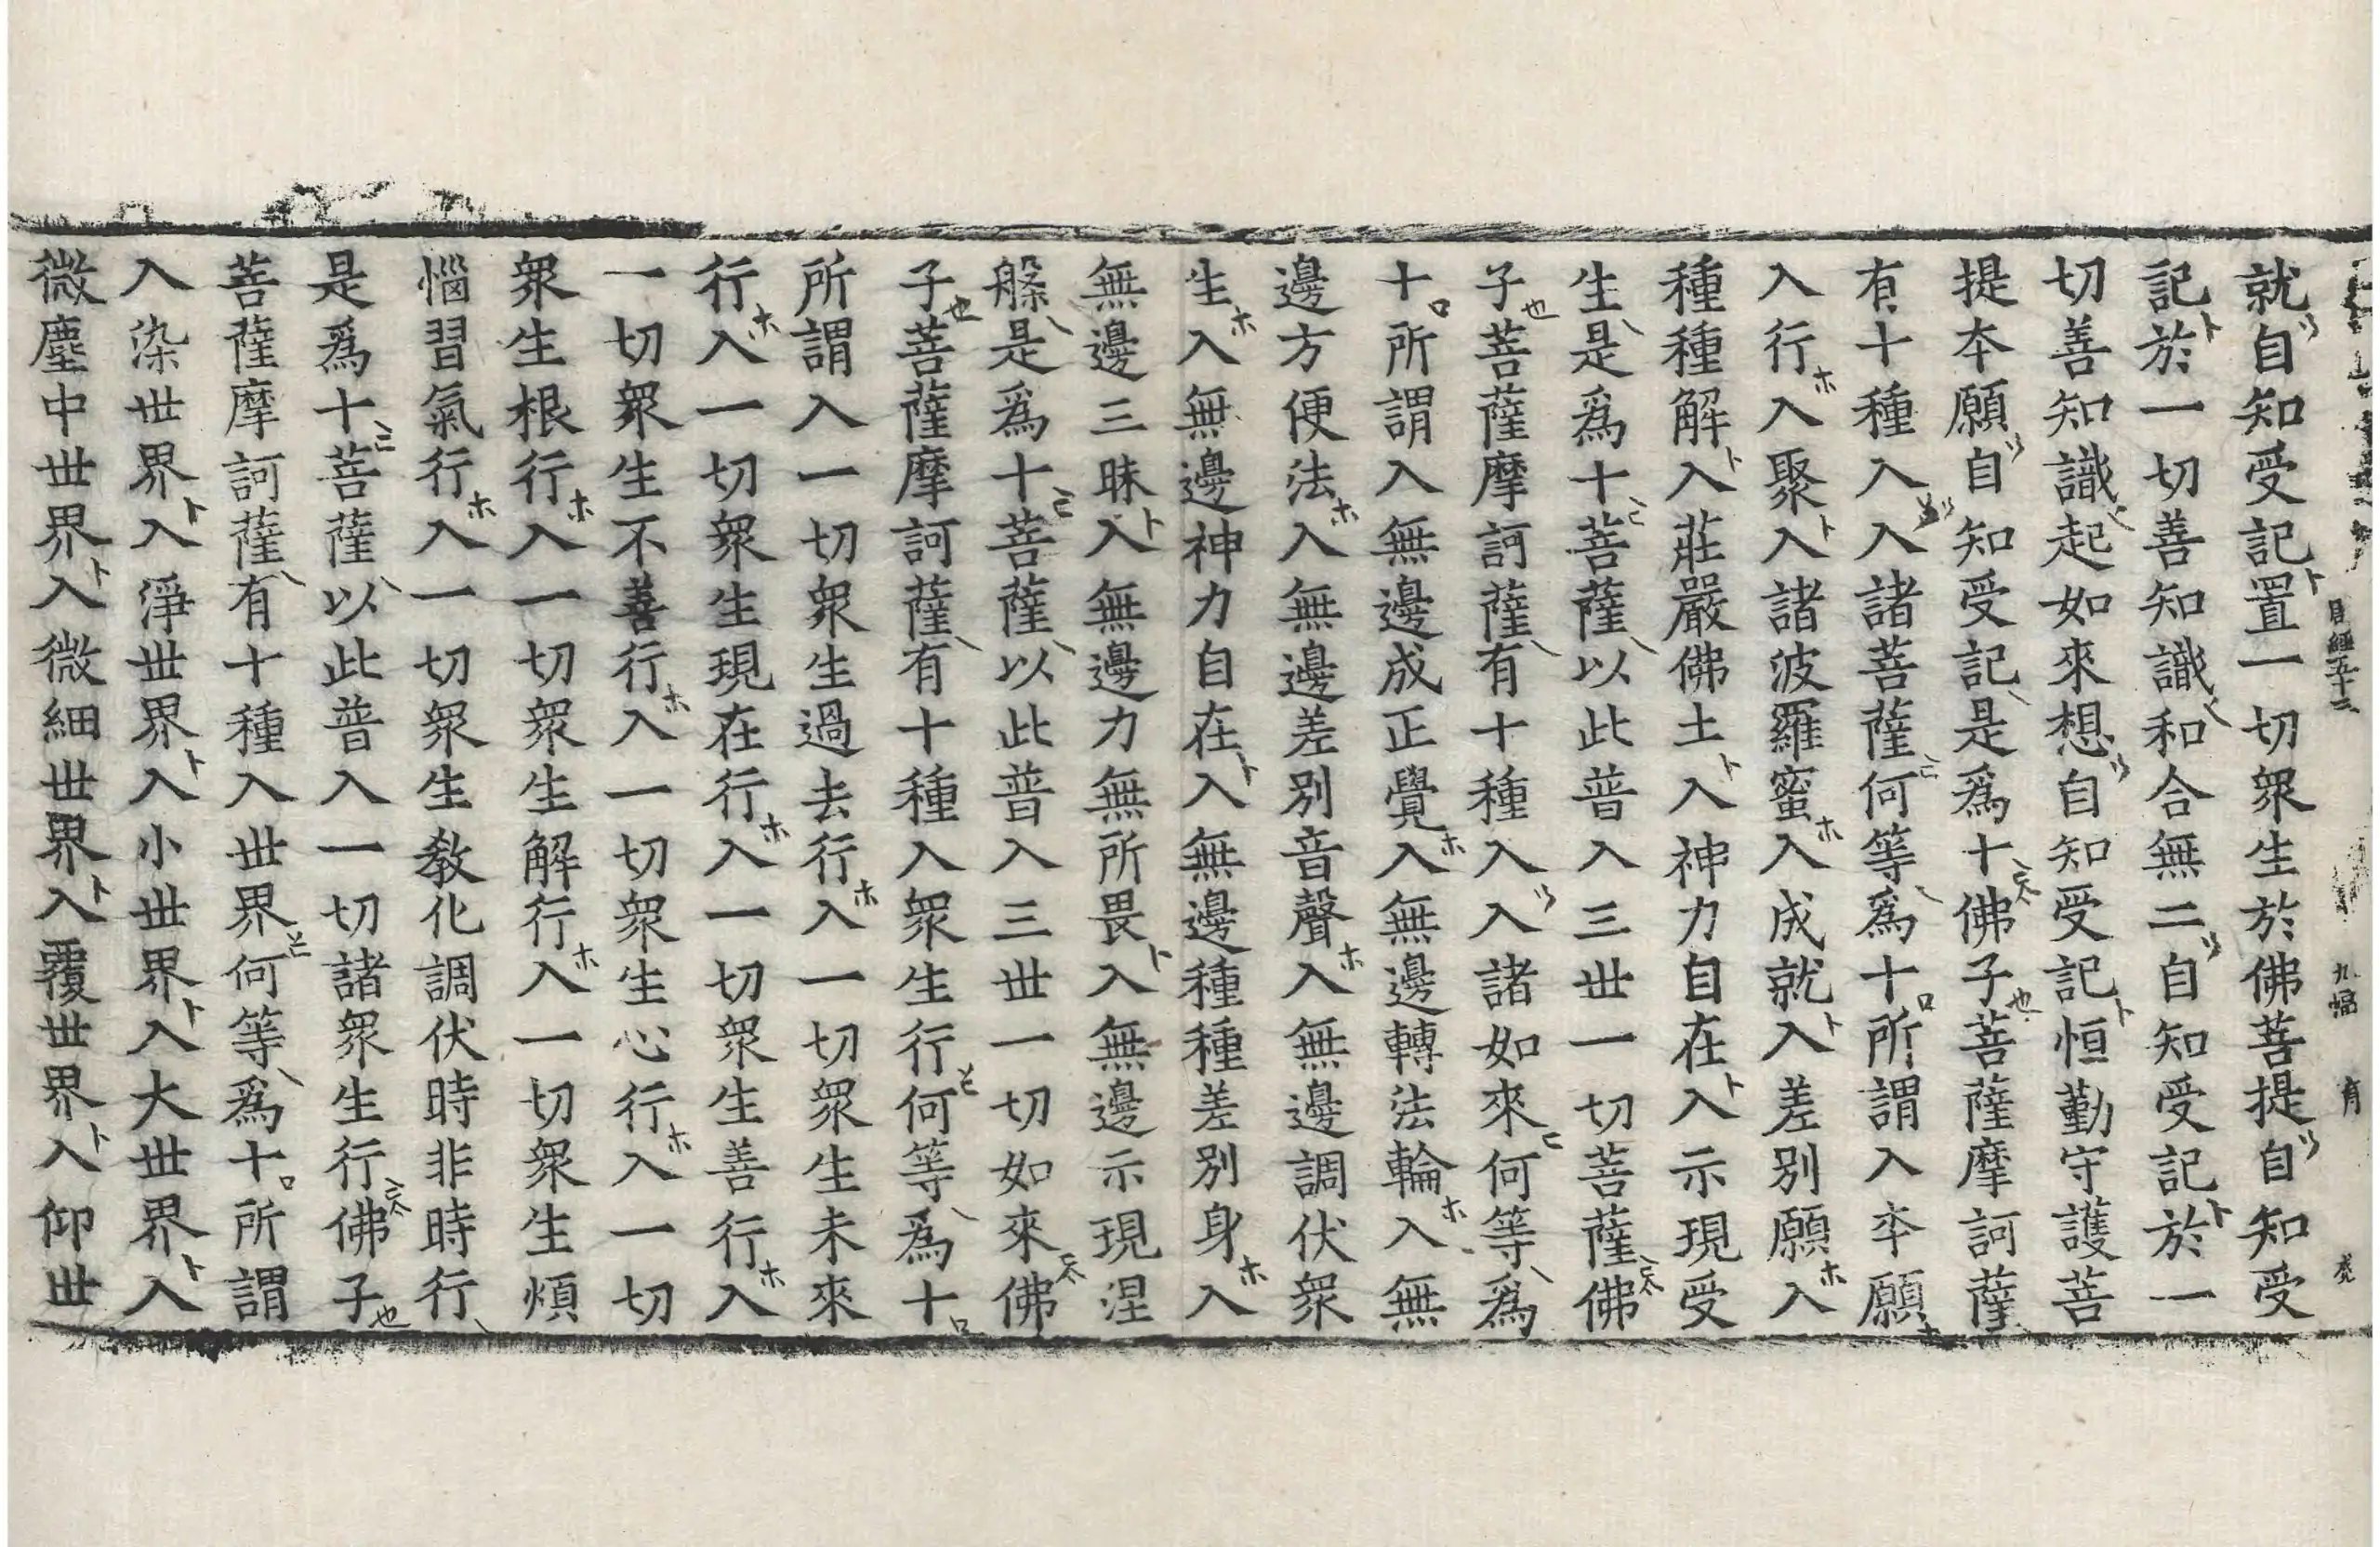 目經五十三 九幅 有
就自知受記置一切衆生於佛菩提自知受
記於一切善知識和合無二自知受記於一
切善知識起如來想自知受記恒勤守護菩
提夲願自知受記是爲十佛子菩薩摩訶薩
有十種入入諸菩薩何等爲十所謂入夲願
入行入聚入諸波羅蜜入成就入差別願入
種種解入莊嚴佛土入神力自在入示現受
生是爲十菩薩以此普入三世一切菩薩佛
子菩薩摩訶薩有十種入入諸如來何等爲
十所謂入無邊成正覺入無邊轉法輪入無
邊方便法入無邊差別音聲入無邊調伏衆
生入無邊神力自在入無邊種種差別身入
無邊三昧入無邊力無所畏入無邊示現涅
槃是爲十菩薩以此普入三世一切如來佛
子菩薩摩訶薩有十種入衆生行何等爲十
所謂入一切衆生過去行入一切衆生未來
行入一切衆生現在行入一切衆生善行入
一切衆生不善行入一切衆生心行入一切
衆生根行入一切衆生解行入一切衆生煩
惱習氣行入一切衆生敎化調伏時非時行
是爲十菩薩以此普入一切諸衆生行佛子
菩薩摩訶薩有十種入世界何等爲十所謂
入染世界入淨世界入小世界入大世界入
微塵中世界入微細世界入覆世界入仰世